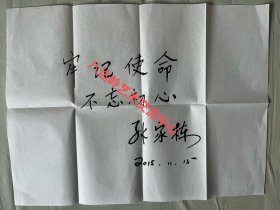 牢记使命
不忘初心
张家栋
2015.11.15